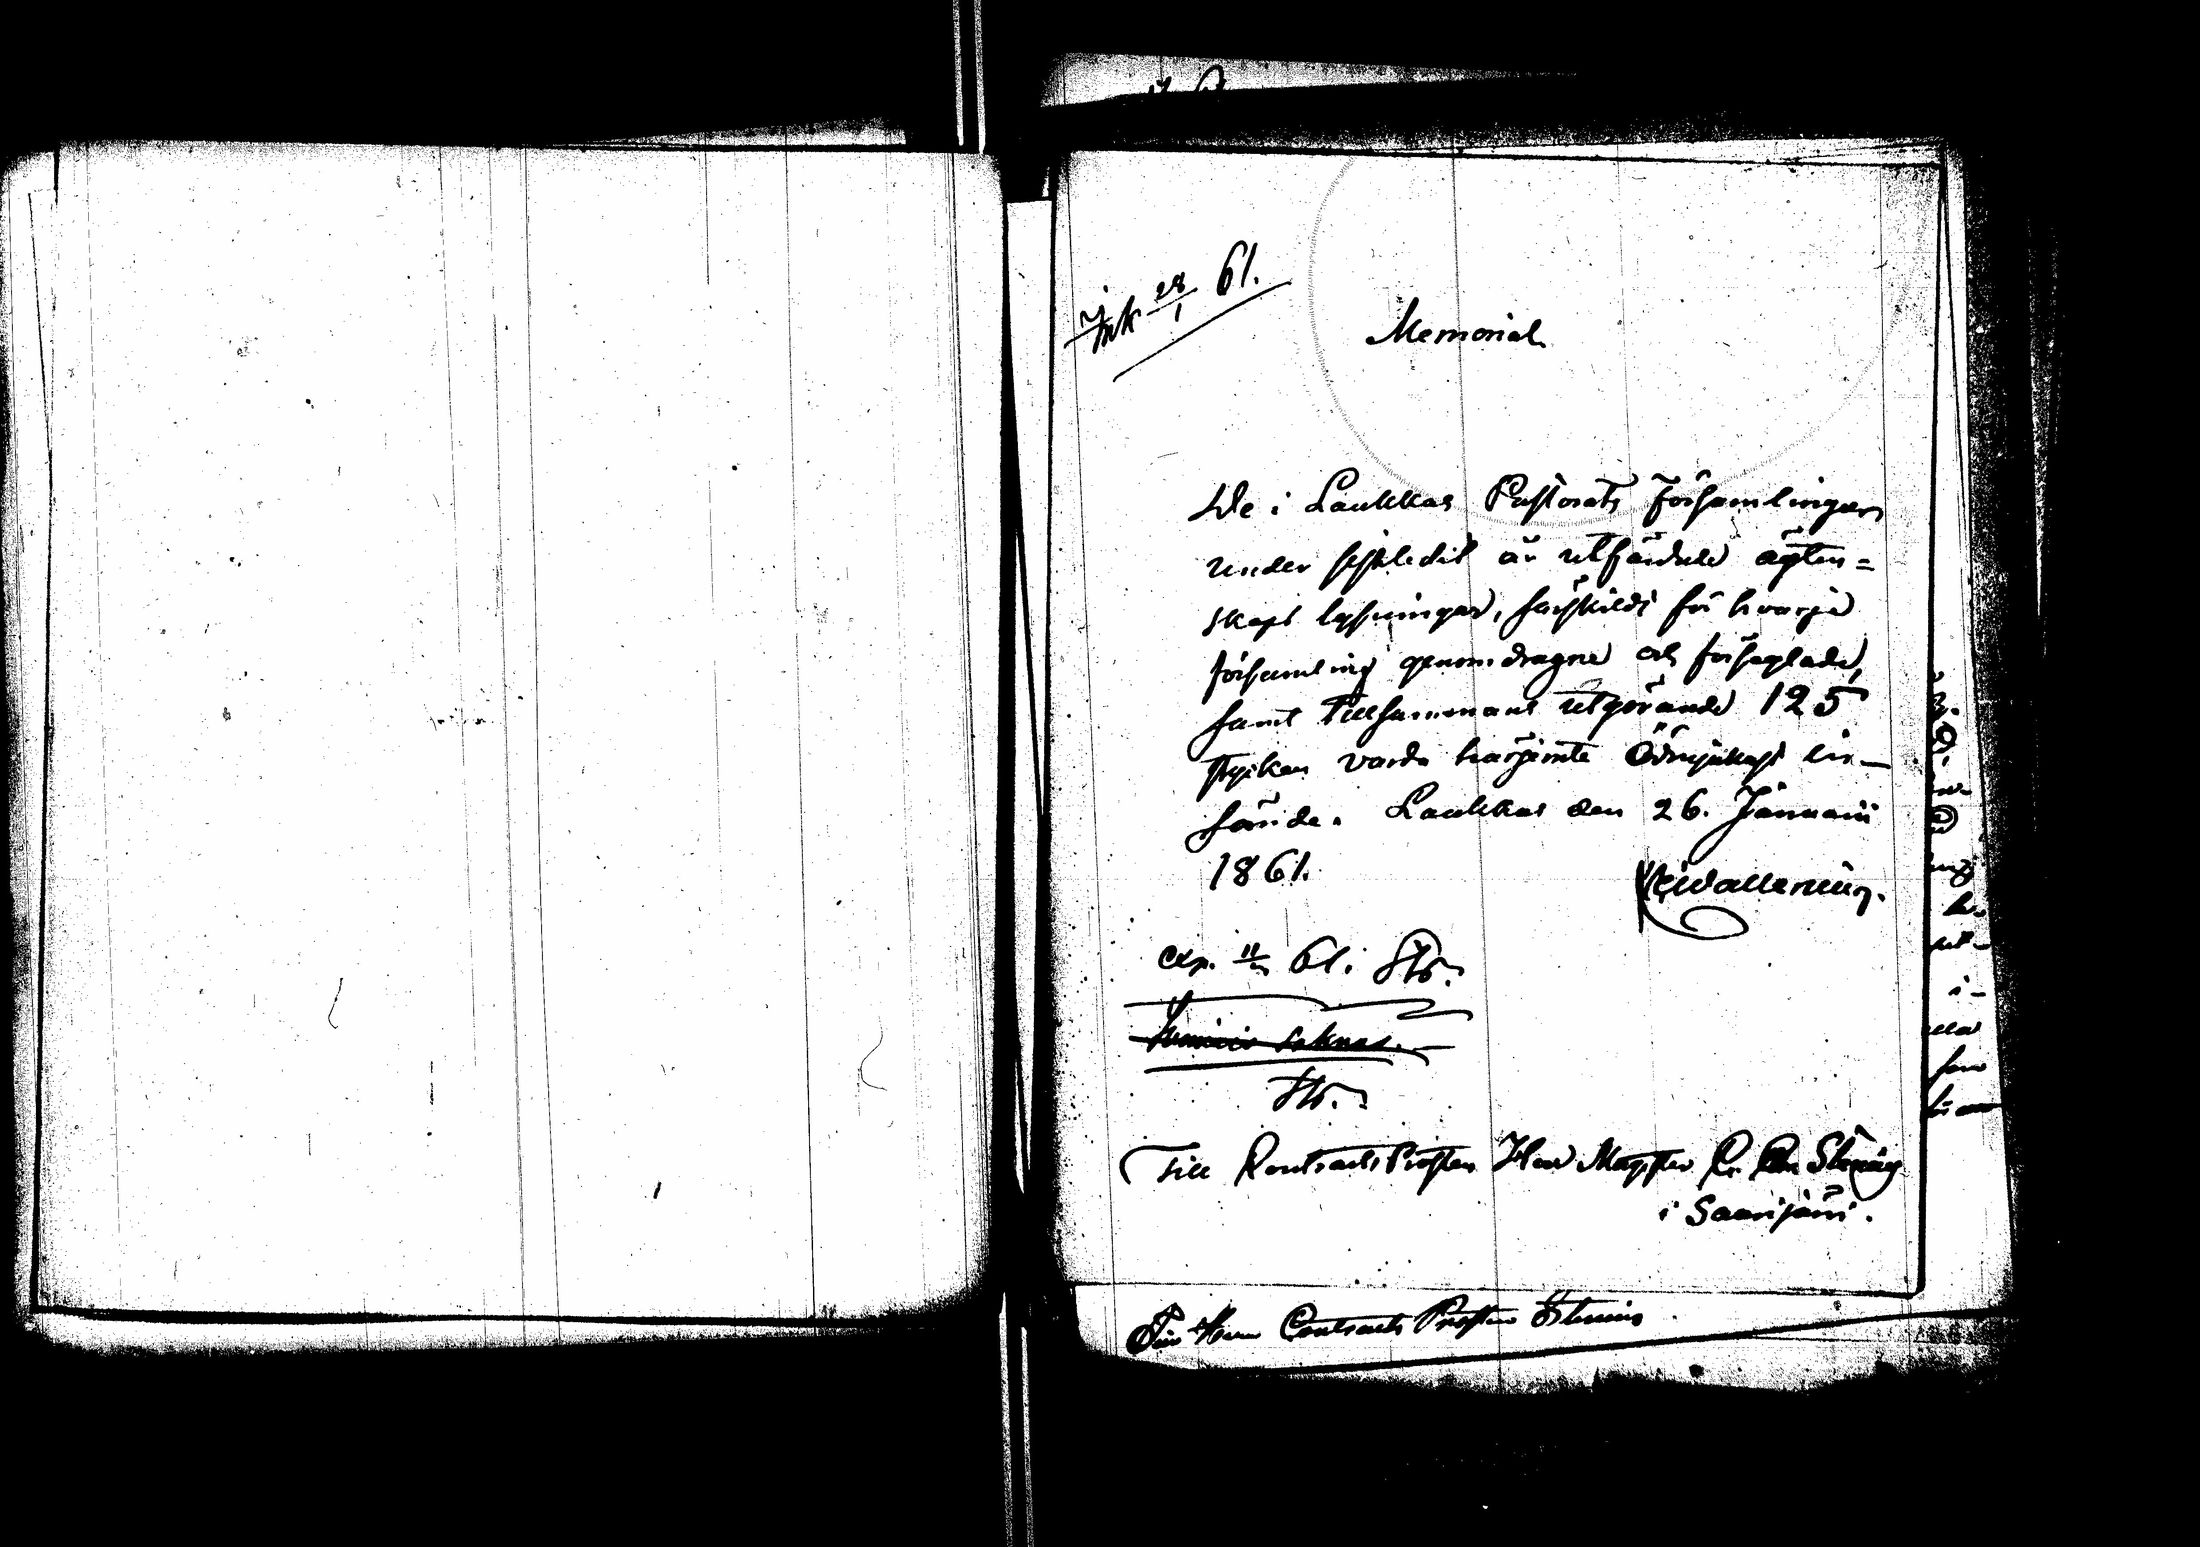 Ink 28/1 61.
Memorial
De i Laukkas Pastorats församlingar
under sistledit år utfärdade ägten=
skaps lysningar, särskildt för hvarje
församling genomdragne och förseglade,
samt tillsammans utgörande 125
stycken varda härjemte ödmjukast in-
sände. Laukkas den 26. Januarii
1861.
Wallenius.
exp. 11/2 61. Sts.
saknas.
Sts.
Till Contracts Prosten Herr Magister Stenius
i Saarijärvi.
Contracts Prosten Stenius